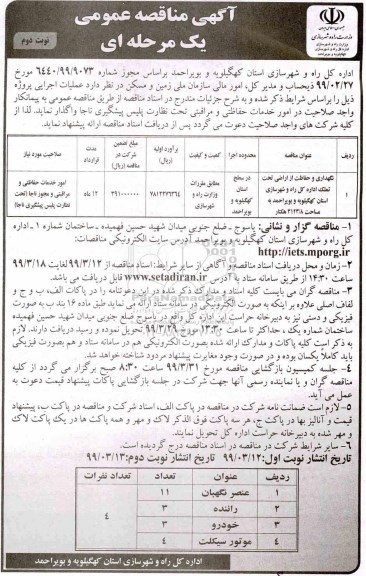 آگهی مناقصه عمومی
یک مرحله ای
نوبت دوم
وزارت راه و شهرسازی
اداره کل راه و شهرسازی استان کهگیلویه و بویراحمد براساس مجوز شماره ۶۴۴۰/۹۹/۹۰۷۳ مورخ
۹۹/۰۲/۲۷ ذیحساب و مدیر کل، امور مالی سازمان ملی زمین و مسکن در نظر دارد عملیات اجرایی پروژه
ذیل را براساس شرایط ذکر شده و به شرح جزئیات مندرج در اسناد مناقصه از طریق مناقصه عمومی به پیمانکار
واجد صلاحیت در امور خدمات حفاظتی و مراقبتی تحت نظارت پلیس پیشگیری ناجا واگذار نماید. لذا از
کلیه شرکت های واجد صلاحیت دعوت می گردد پس از دریافت اسناد مناقصه ارائه پیشنهاد نماید.
ردیف عنوان مناقصه محدوده اجرا کمیت و کیفیت برآورد اولیه (ریال) مبلغ تضمین شرکت در مناقصه (ریال) مدت قرارداد صلاحیت مورد نیاز
۱ نگهداری و حفاظت از اراضی تحت تملک اداره کل راه و شهرسازی استان کهگیلویه و بویراحمد به مساحت ۲۱۲۳۱۸ هکتار در سطح استان کهگیلویه و بویراحمد مطابق مقررات وزارت راه و شهرسازی ۷۸۱۲۲۷۳۲۶۴ ۳۹۱۰۰۰۰۰۰ ۱۲ ماه امور خدمات حفاظتی و مراقبتی و مجوز ناجا (تحت نظارت پلیس پیشگیری ناجا)
۱- مناقصه گزار و نشانی: یاسوج - ضلع جنوبی میدان شهید حسین فهمیده - ساختمان شماره ۱ - اداره
کل راه و شهرسازی استان کهگیلویه و بویراحمد آدرس سایت الکترونیکی مناقصات:
http://iets.mporg.ir
۲- زمان و محل دریافت اسناد مناقصه و آگاهی از سایر شرایط: اسناد مناقصه از ۹۹/۳/۱۲ لغایت ۹۹/۳/۱۸
ساعت ۱۴:۳۰ از طریق سامانه ستاد با آدرس www.setadiran.ir قابل دریافت می باشد.
۳- مناقصه گران می بایست کلیه اسناد و مدارک ذکر شده در این دعوتنامه را در پاکات الف، ب و ج و
لفاف اصلی علاوه بر اینکه به صورت الکترونیکی در سامانه ستاد ارائه می نماید طبق ماده ۱۶ بند ب به صورت
فیزیکی و دستی نیز به دبیرخانه حراست این اداره کل واقع در یاسوج ضلع جنوبی میدان شهید حسین فهمیده
ساختمان شماره یک، حداکثر تا ساعت ۱۳:۳۰ مورخ ۹۹/۳/۲۹ تحویل نموده و رسید دریافت دارند. لازم
به ذکر است کلیه پاکات و مدارک ارائه شده بصورت الکترونیکی هم در سامانه ستاد و هم بصورت فیزیکی
باید کاملاً یکسان بوده و در صورت وجود مغایرت پیشنهاد مردود شناخته خواهد شد.
۴- جلسه کمیسیون بازگشایی مناقصه مورخ ۹۹/۳/۳۱ ساعت ۸:۳۰ صبح برگزار می گردد از کلیه
مناقصه گران و یا نماینده رسمی آنها جهت شرکت در جلسه بازگشایی پاکات پیشنهاد قیمت دعوت به
عمل می آید.
۵- لازم است ضمانت نامه شرکت در مناقصه در پاکت الف، اسناد شرکت و مناقصه در پاکت ب، پیشنهاد
قیمت و آنالیز بها در پاکت ج، هر سه پاکت فوق الذکر لاک و مهر و همه پاکت ها در یک پاکت لاک
و مهر شده به دبیرخانه حراست اداره کل تحویل نمایند.
۶- سایر شرایط شرکت در مناقصه در اسناد مناقصه درج گردیده است.
تاریخ انتشار نوبت اول: ۹۹/۰۳/۱۲ تاریخ انتشار نوبت دوم: ۹۹/۰۳/۱۳
ردیف عنوان تعداد تعداد نفرات
۱ عنصر نگهبان ۱۱ ۴
۲ راننده ۳
۳ خودرو ۳
۴ موتور سیکلت ۴
اداره کل راه و شهرسازی استان کهگیلویه و بویراحمد